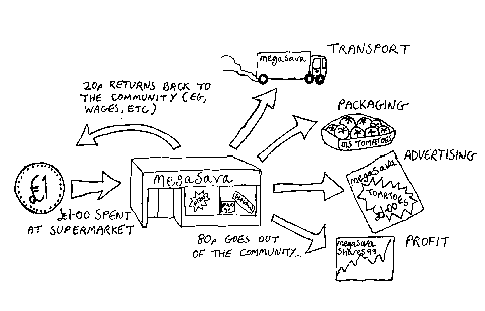 TRANSPORT
megaSava
20p RETURNS BACK TO
THE COMMUNITY (EG,
WAGES, ETC)
PACKAGING
TOMATOES
ADVERTISING
megaSava
TOMATOES
£1.00
£1
megaSava
£1.00 SPENT
AT SUPERMARKET
80p GOES OUT
OF THE COMMUNITY...
PROFIT
megaSava
SHARES